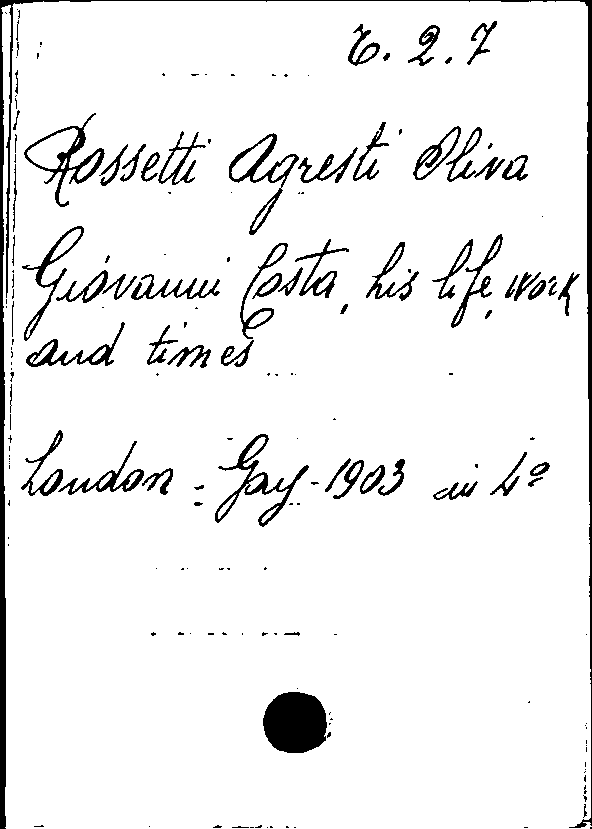 6. 2. 7
Rossetti Agresti Oliva
Giovanni Costa, his life, work
and times
London - Gay - 1903 in 4º